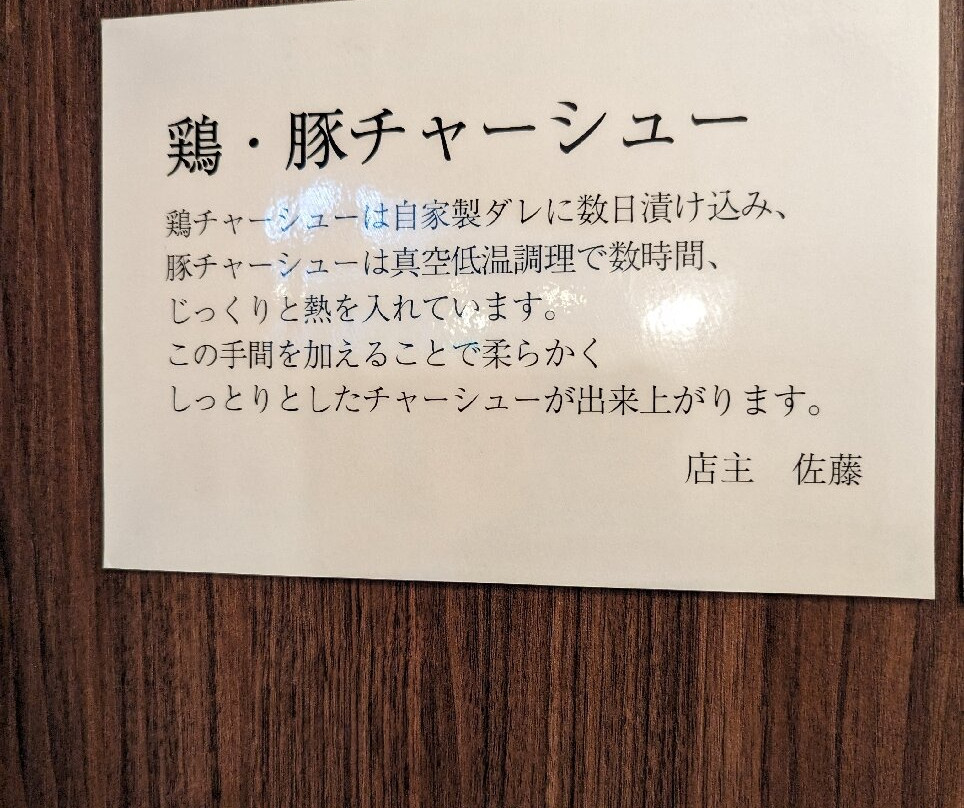 鶏・豚チャーシュー
鶏チャーシューは自家製ダレに数日漬け込み、
豚チャーシューは真空低温調理で数時間、
じっくりと熱を入れています。
この手間を加えることで柔らかく
しっとりとしたチャーシューが出来上がります。
店主　佐藤